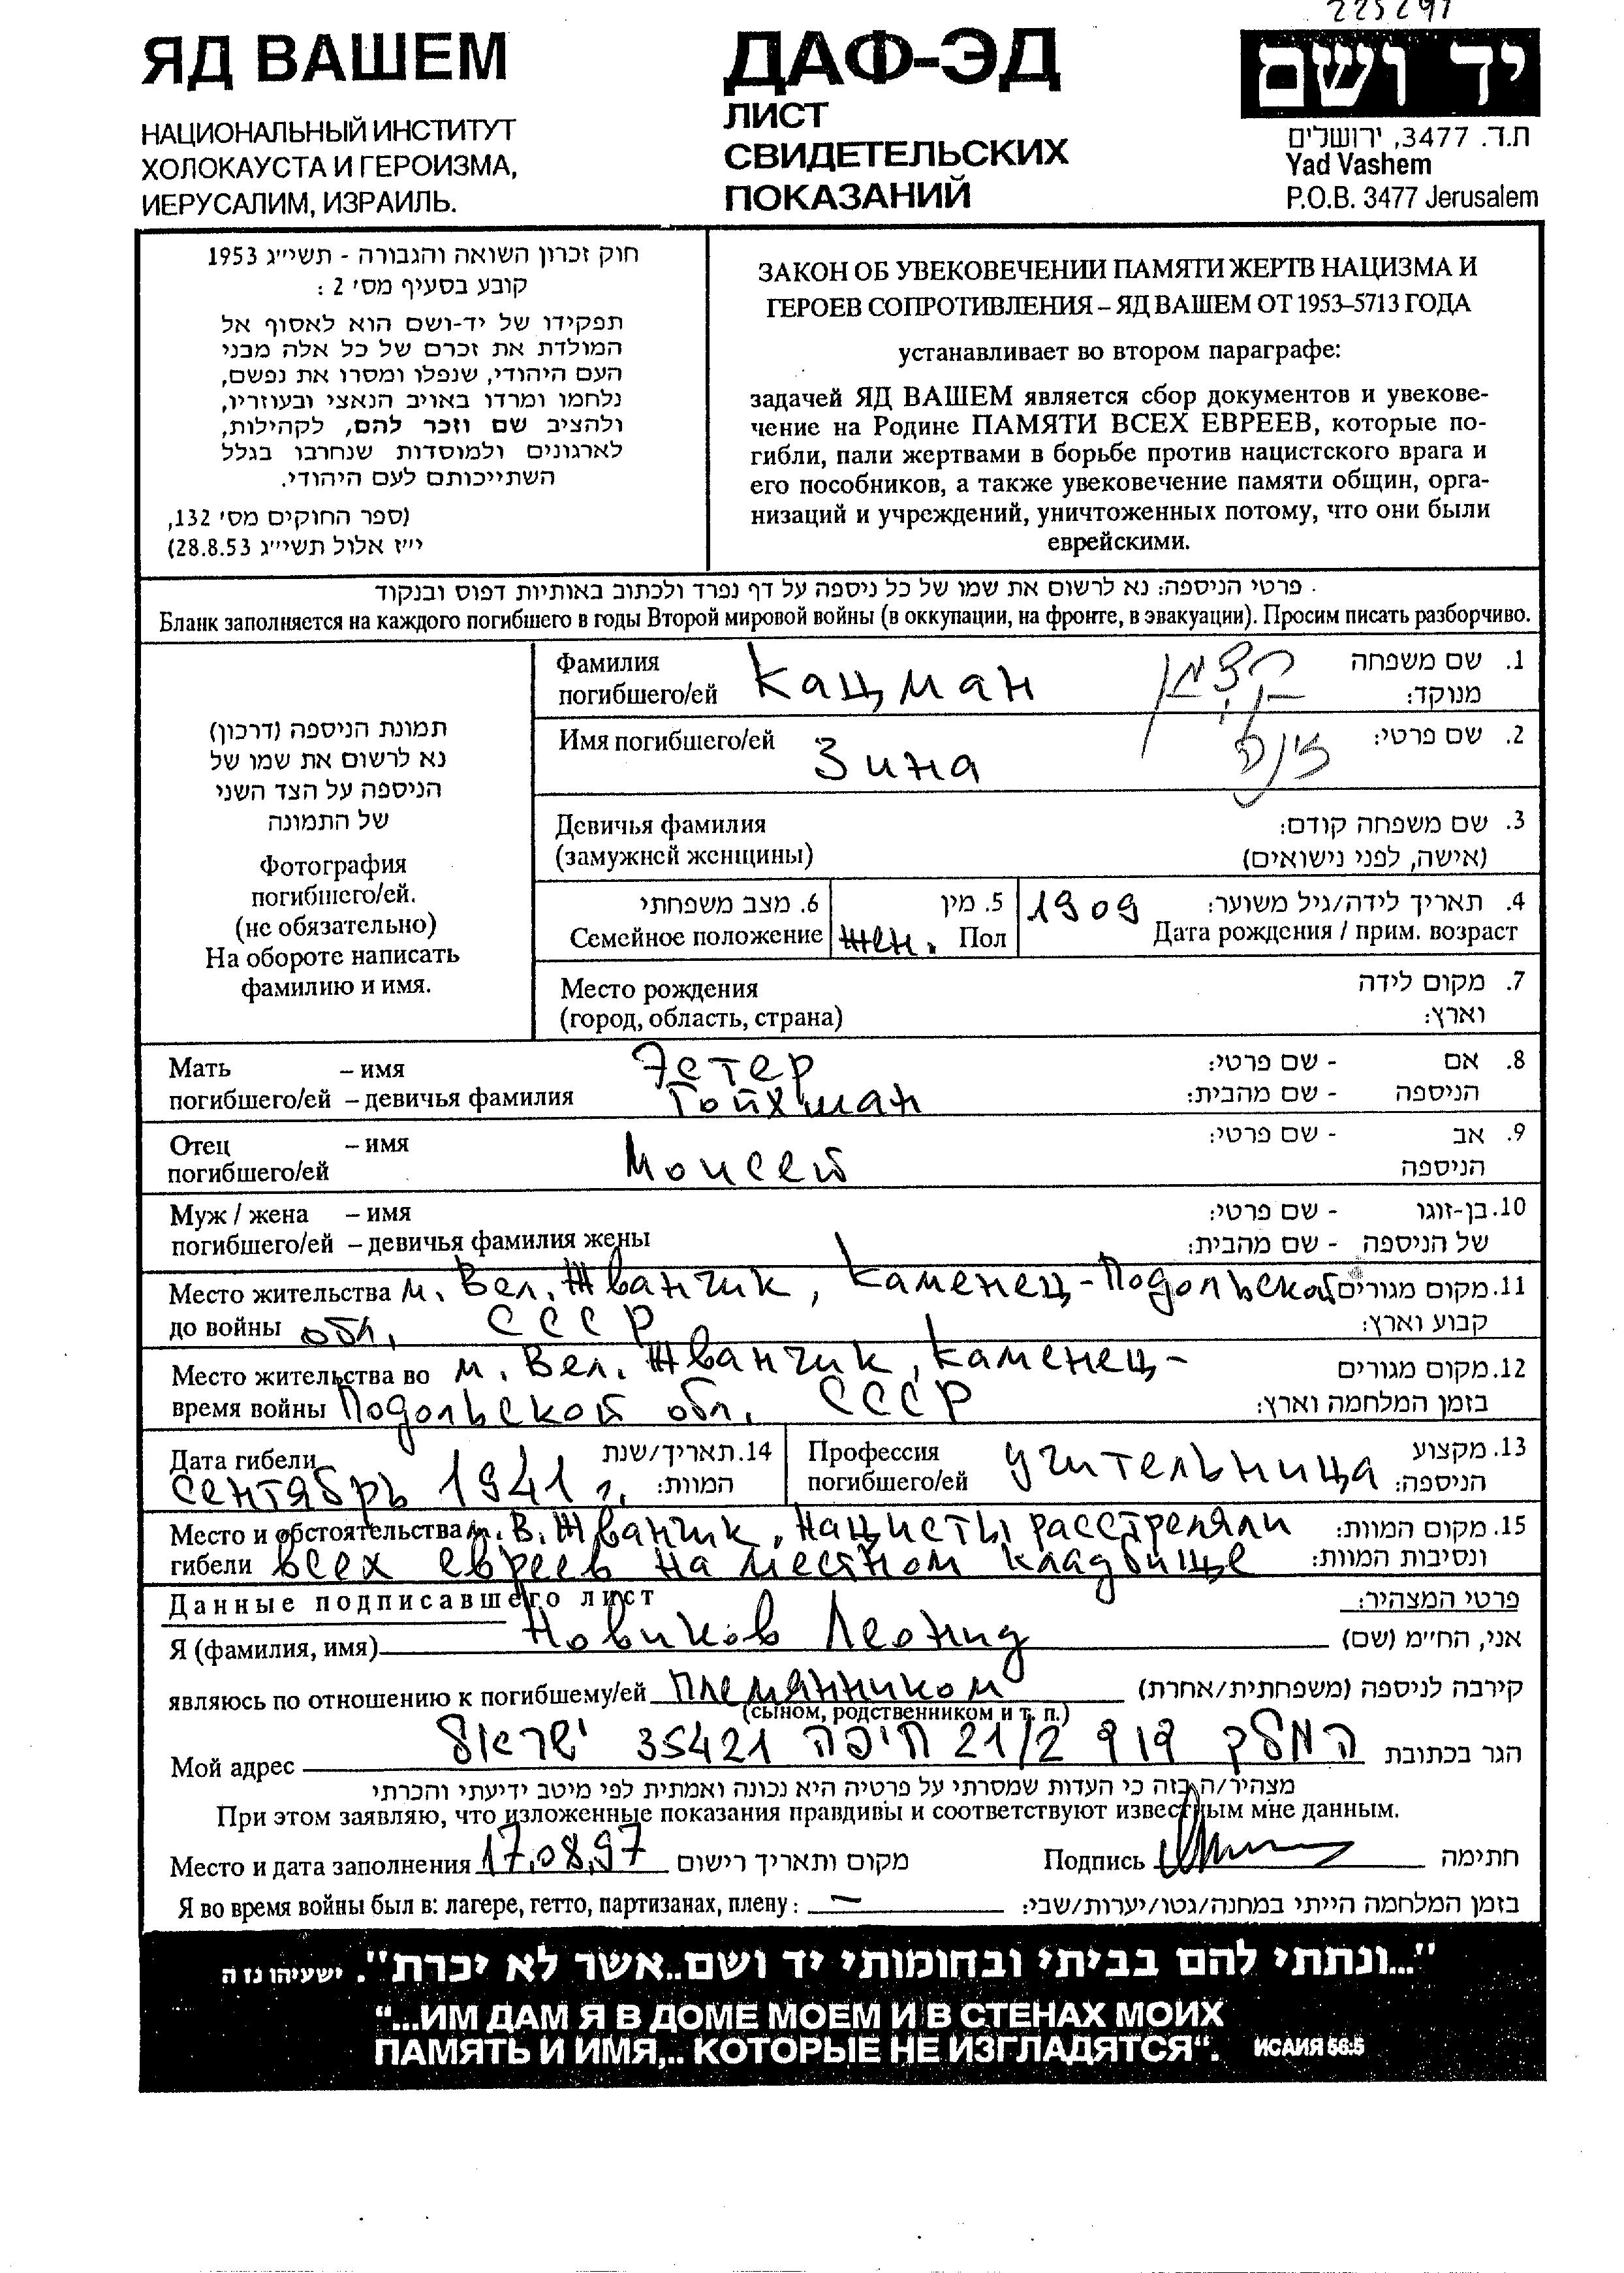 225291
ЯД ВАШЕМ
НАЦИОНАЛЬНЫЙ ИНСТИТУТ
ХОЛОКАУСТА И ГЕРОИЗМА,
ИЕРУСАЛИМ, ИЗРАИЛЬ.
ДАФ-ЭД
ЛИСТ
СВИДЕТЕЛЬСКИХ
ПОКАЗАНИЙ
יד ושם
ת.ד. 3477, ירושלים
Yad Vashem
P.O.B. 3477 Jerusalem
חוק זכרון השואה והגבורה - תשי״ג 1953
קובע בסעיף מס׳ 2 :
תפקידו של יד-ושם הוא לאסוף אל
המולדת את זכרם של כל אלה מבני
העם היהודי, שנפלו ומסרו את נפשם,
נלחמו ומרדו באויב הנאצי ובעוזריו,
ולהציב שם וזכר להם, לקהילות,
לארגונים ולמוסדות שנחרבו בגלל
השתייכותם לעם היהודי.
(ספר החוקים מס׳ 132,
י״ז אלול תשי״ג 28.8.53)
ЗАКОН ОБ УВЕКОВЕЧЕНИИ ПАМЯТИ ЖЕРТВ НАЦИЗМА И
ГЕРОЕВ СОПРОТИВЛЕНИЯ – ЯД ВАШЕМ ОТ 1953–5713 ГОДА
устанавливает во втором параграфе:
задачей ЯД ВАШЕМ является сбор документов и увекове-
чение на Родине ПАМЯТИ ВСЕХ ЕВРЕЕВ, которые по-
гибли, пали жертвами в борьбе против нацистского врага и
его пособников, а также увековечение памяти общин, орга-
низаций и учреждений, уничтоженных потому, что они были
еврейскими.
פרטי הניספה: נא לרשום את שמו של כל ניספה על דף נפרד ולכתוב באותיות דפוס ובנקוד.
Бланк заполняется на каждого погибшего в годы Второй мировой войны (в оккупации, на фронте, в эвакуации). Просим писать разборчиво.
תמונת הניספה (דרכון)
נא לרשום את שמו של
הניספה על הצד השני
של התמונה
Фотография
погибшего/ей.
(не обязательно)
На обороте написать
фамилию и имя.
Фамилия Кацман קצמן 1. שם משפחה
погибшего/ей מנוקד:
Имя погибшего/ей Зина זינה 2. שם פרטי:
Девичья фамилия 3. שם משפחה קודם:
(замужней женщины) (אישה, לפני נישואים)
6. מצב משפחתי 5. מין 1909 4. תאריך לידה/גיל משוער:
Семейное положение жен. Пол Дата рождения / прим. возраст
Место рождения 7. מקום לידה
(город, область, страна) וארץ:
Мать – имя Эстер - שם פרטי: 8. אם
погибшего/ей – девичья фамилия Гойхман - שם מהבית: הניספה
Отец – имя Моисей - שם פרטי: 9. אב
погибшего/ей הניספה
Муж / жена – имя - שם פרטי: 10. בן-זוגו
погибшего/ей – девичья фамилия жены - שם מהבית: של הניספה
Место жительства м. Вел. Жванчик, Каменец-Подольской 11. מקום מגורים
до войны обл, СССР קבוע וארץ:
Место жительства во м. Вел. Жванчик, Каменец- 12. מקום מגורים
время войны Подольской обл. СССР בזמן המלחמה וארץ:
Дата гибели 14. תאריך/שנת Профессия учительница 13. מקצוע
сентябрь 1941 г. המוות: погибшего/ей הניספה:
Место и обстоятельства м. В. Жванчик, нацисты расстреляли 15. מקום המוות:
гибели всех евреев на местном кладбище ונסיבות המוות:
Данные подписавшего лист פרטי המצהיר:
Я (фамилия, имя) Новиков Леонид אני, החי״מ (שם)
являюсь по отношению к погибшему/ей племянником קירבה לניספה (משפחתית/אחרת)
(сыном, родственником и т. п.)
Мой адрес המלך דוד 21/2 חיפה 35421 ישראל הגר בכתובת
מצהיר/ה בזה כי העדות שמסרתי על פרטיה היא נכונה ואמתית לפי מיטב ידיעתי והכרתי
При этом заявляю, что изложенные показания правдивы и соответствуют известным мне данным.
Место и дата заполнения 17.08.97 מקום ותאריך רישום Подпись חתימה
Я во время войны был в: лагере, гетто, партизанах, плену: – בזמן המלחמה הייתי במחנה/גטו/יערות/שבי:
"...ונתתי להם בביתי ובחומותי יד ושם..אשר לא יכרת". ישעיהו נז ה
“...ИМ ДАМ Я В ДОМЕ МОЕМ И В СТЕНАХ МОИХ
ПАМЯТЬ И ИМЯ,.. КОТОРЫЕ НЕ ИЗГЛАДЯТСЯ“. ИСАИЯ 56:5